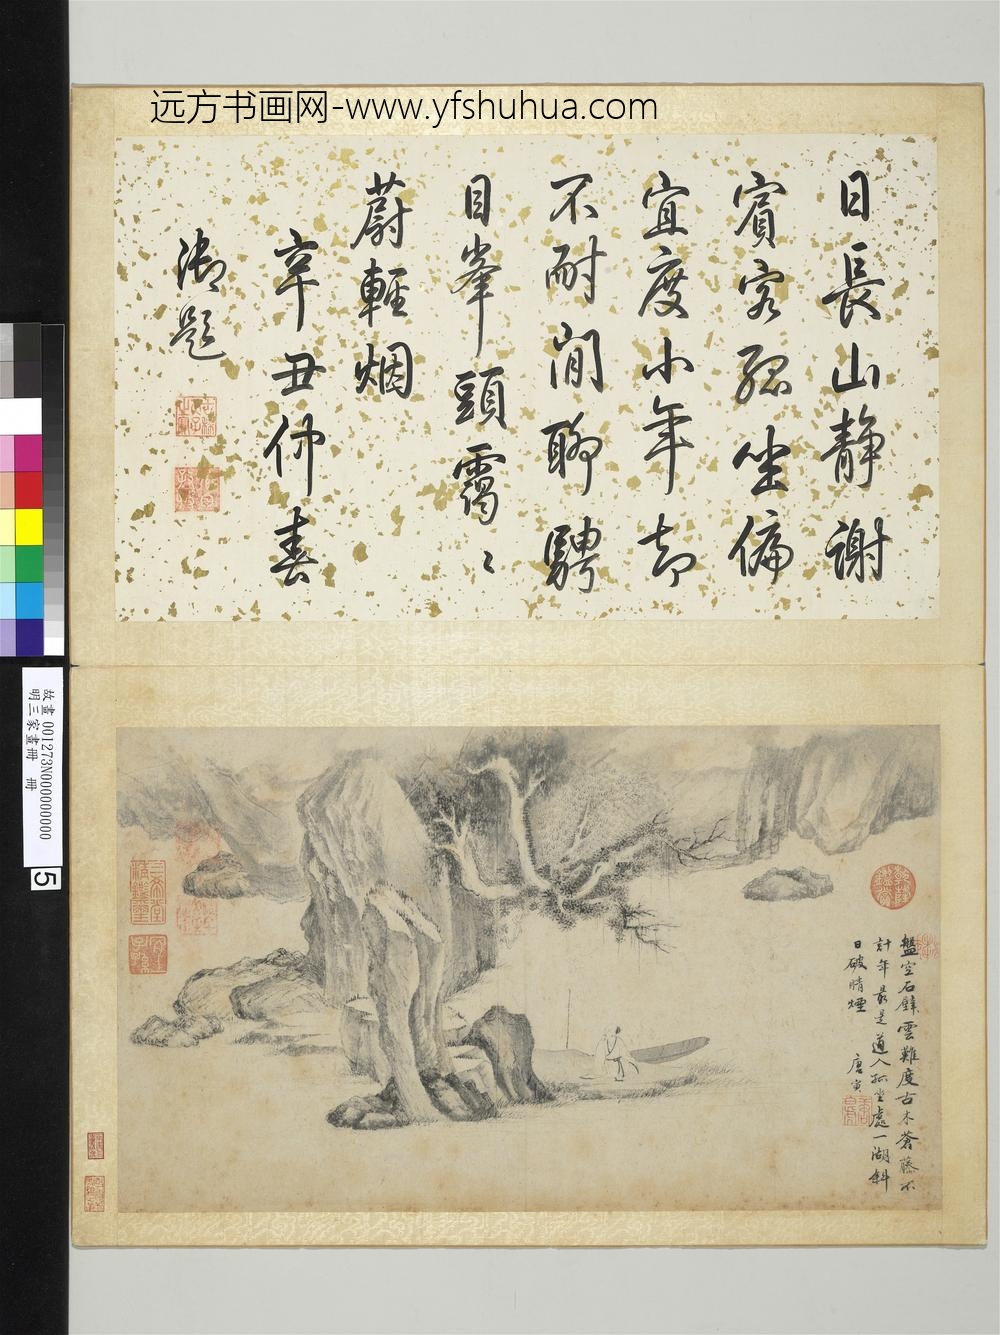 远方书画网-www.yfshuhua.com
日長山静謝
賓客孤坐偏
宜度小年却
不耐閒聊騁
目峯頭靄〻
蔚輕烟
辛丑仲春
御題
故畫 001273N000000000
明三家畫冊 冊
5
盤空石壁雲難度古木蒼藤不
計年最是道人孤坐處一湖斜
日破晴煙
唐寅
三希堂精鑑璽
宜子孫